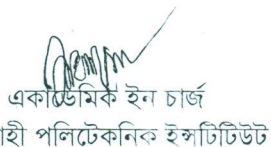 একাডেমিক ইন চার্জ
হী পলিটেকনিক ইন্সটিটিউট